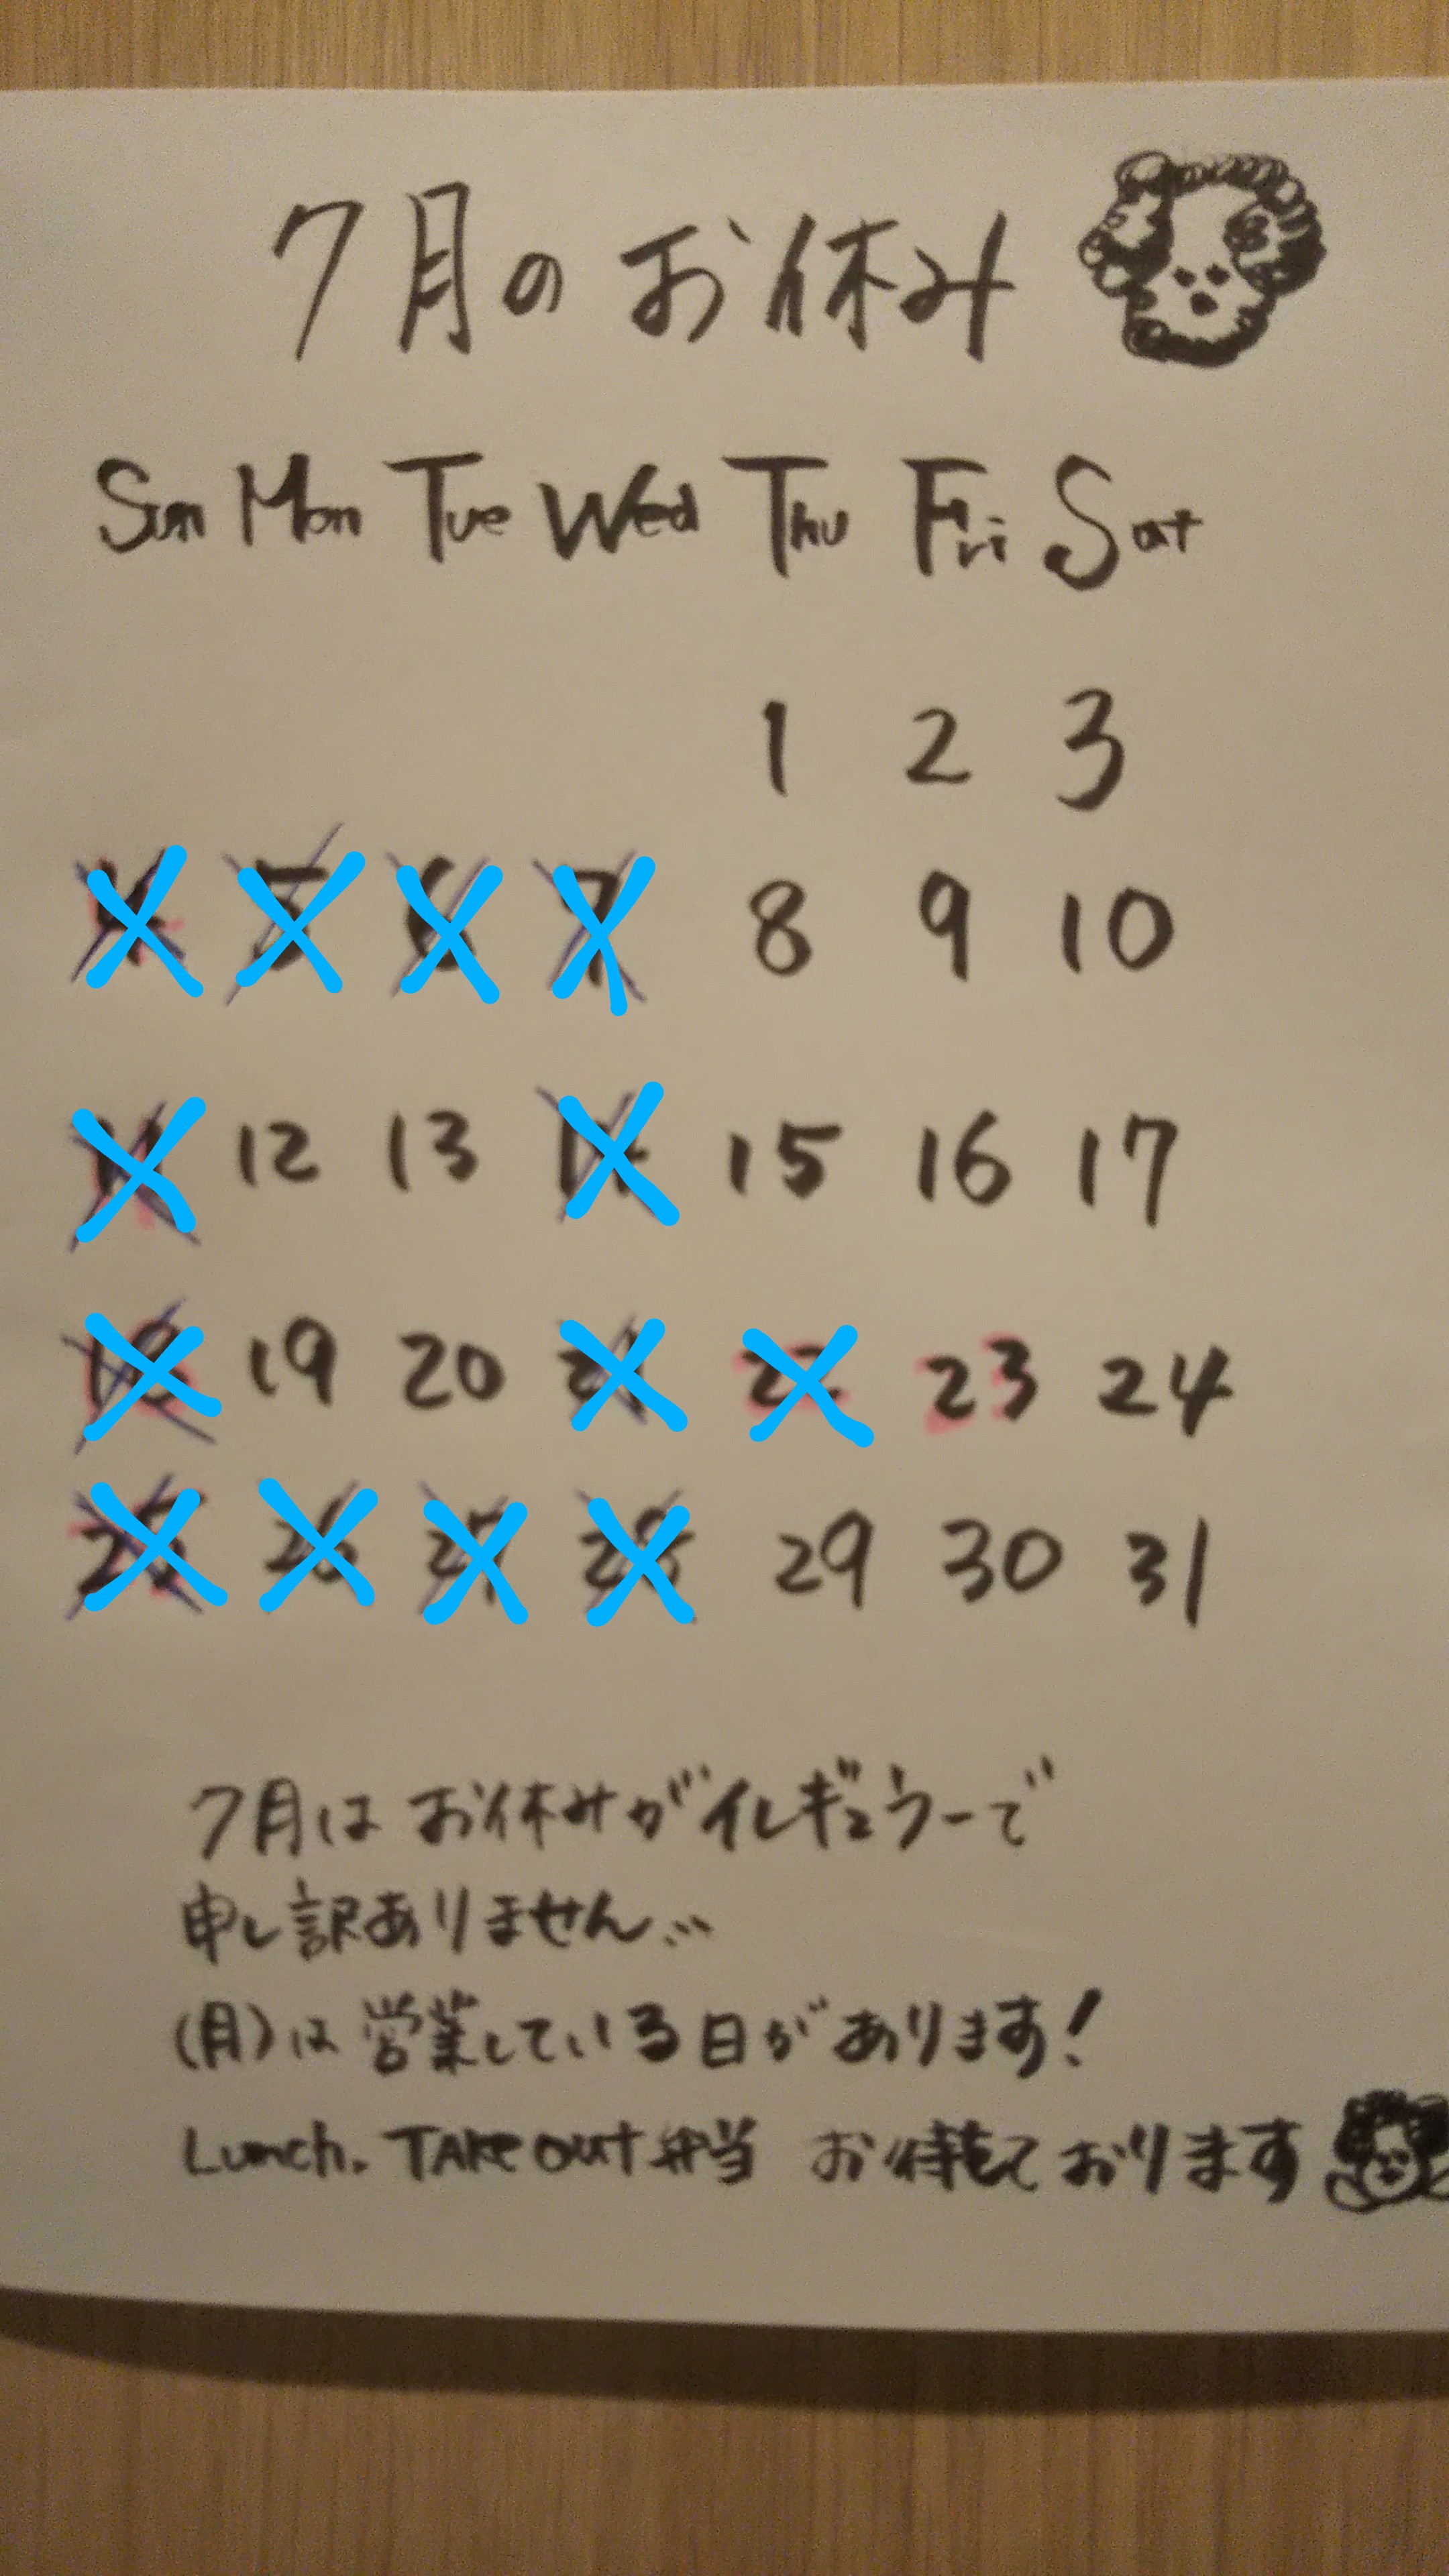 7月のお休み
Sun Mon Tue Wed Thu Fri Sat
1 2 3
4 5 6 7 8 9 10
11 12 13 14 15 16 17
18 19 20 21 22 23 24
25 26 27 28 29 30 31
7月はお休みがイレギュラーで
申し訳ありません...
(月)は営業している日があります!
Lunch. TAKe out 弁当 お待ちしております